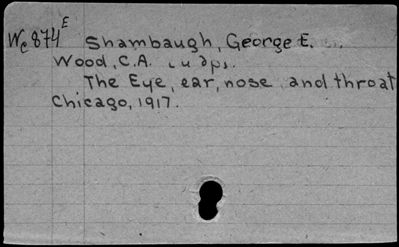 Wc874E Shambaugh, George E.
Wood, C.A.
The Eye, ear, nose and throat
Chicago, 1917.